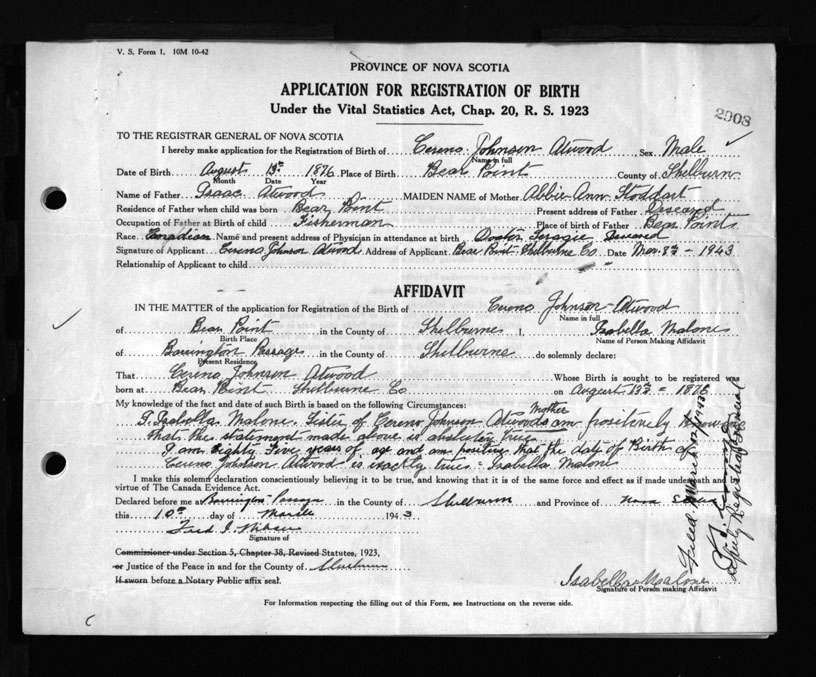 V. S. Form 1. 10M 10-42
PROVINCE OF NOVA SCOTIA
APPLICATION FOR REGISTRATION OF BIRTH
Under the Vital Statistics Act, Chap. 20, R. S. 1923
2908
TO THE REGISTRAR GENERAL OF NOVA SCOTIA
I hereby make application for the Registration of Birth of Cereno Johnson Atwood Sex Male
Name in full
Date of Birth August 13th 1876 Place of Birth Bear Point County of Shelburn
Month Date Year
Name of Father Isaac Atwood MAIDEN NAME of Mother Abbie Ann Stoddart
Residence of Father when child was born Bear Point Present address of Father Deceased
Occupation of Father at Birth of child Fisherman Place of birth of Father Bear Point
Race Canadian Name and present address of Physician in attendance at birth Doctor Deceased
Signature of Applicant Cereno Johnson Atwood Address of Applicant Bear Point Shelburne Co Date Mar. 8th - 1943
Relationship of Applicant to child
AFFIDAVIT
IN THE MATTER of the application for Registration of the Birth of Cereno Johnson Atwood
Name in full
of Bear Point in the County of Shelburne I, Isabella Malone
Birth Place Name of Person Making Affidavit
of Barrington Passage in the County of Shelburne do solemnly declare:
Present Residence
That Cereno Johnson Atwood Whose Birth is sought to be registered was
born at Bear Point Shelburne Co on August 13th = 1876
My knowledge of the fact and date of such Birth is based on the following Circumstances:
Mother
I, Isabella Malone, Sister of Cereno Johnson Atwoods am positively knowing
that the statement made above is absolutely true
I am Eighty Five years of age and am positive that the date of Birth of
Cereno Johnson Atwood is exactly true - Isabella Malone
I make this solemn declaration conscientiously believing it to be true, and knowing that it is of the same force and effect as if made under oath and by
virtue of The Canada Evidence Act.
Declared before me at Barrington Passage in the County of Shelburn and Province of Nova Scotia
this 10th day of March 1943
Signature of
Commissioner under Section 5, Chapter 38, Revised Statutes, 1923,
or Justice of the Peace in and for the County of Shelburne
If sworn before a Notary Public affix seal.
Isabella Malone
Signature of Person making Affidavit
For Information respecting the filling out of this Form, see Instructions on the reverse side.
Filed March
Deputy Registrar General